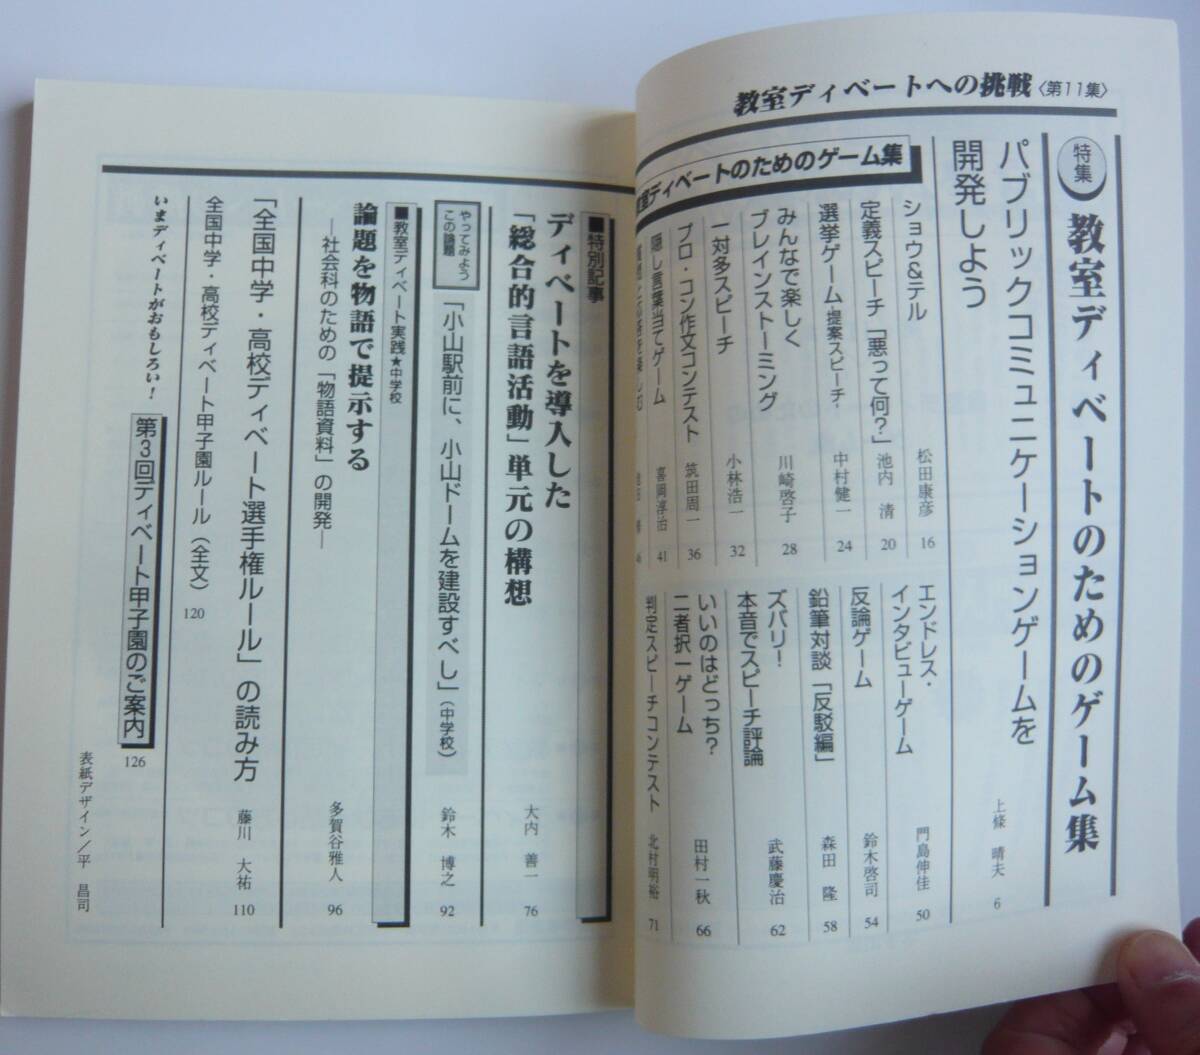 教室ディベートへの挑戦〈第11集〉
特集
教室ディベートのためのゲーム集
パブリックコミュニケーションゲームを
開発しよう
上條 晴夫 6
室ディベートのためのゲーム集
ショウ&テル
松田康彦 16
定義スピーチ「悪って何?」
池内 清 20
選挙ゲーム-提案スピーチ-
中村健一 24
みんなで楽しく
ブレインストーミング
川崎啓子 28
一対多スピーチ
小林浩一 32
プロ・コン作文コンテスト
筑田周一 36
隠し言葉当てゲーム
喜岡淳治 41
エンドレス・
インタビューゲーム
門島伸佳 50
反論ゲーム
鈴木啓司 54
鉛筆対談「反駁編」
森田 隆 58
ズバリ!
本音でスピーチ評論
武藤慶治 62
いいのはどっち?
二者択一ゲーム
田村一秋 66
判定スピーチコンテスト
北村明裕 71
■特別記事
ディベートを導入した
「総合的言語活動」単元の構想
大内 善一 76
やってみよう
この論題
「小山駅前に、小山ドームを建設すべし」(中学校)
鈴木 博之 92
■教室ディベート実践★中学校
論題を物語で提示する
—社会科のための「物語資料」の開発—
多賀谷雅人 96
「全国中学・高校ディベート選手権ルール」の読み方
藤川 大祐 110
全国中学・高校ディベート甲子園ルール(全文)
120
いまディベートがおもしろい!
第3回ディベート甲子園のご案内
126
表紙デザイン/平 昌司